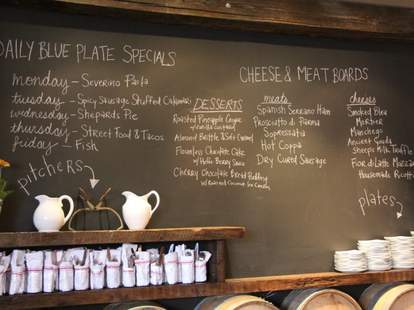 DAILY BLUE PLATE SPECIALS
monday - Severino Pasta
tuesday - Spicy Sausage Stuffed Calamari
wednesday - Shepards Pie
thursday - Street Food & Tacos
friday - Fish
pitchers
DESSERTS
Roasted Pineapple Crepe
w/ vanilla custard
Almond Brittle & Salt Caramel
Flourless Chocolate Cake
w/ Berry Sauce
Cherry Chocolate Bread Pudding
w/ Coconut Ice Cream
CHEESE & MEAT BOARDS
meats
Spanish Serrano Ham
Prosciutto di Parma
Sopressata
Hot Coppa
Dry Cured Sausage
cheeses
Smoked Blue
Morbier
Manchego
Ancient Gouda
Sheeps Milk Truffle
Fior di Latte Mozzar
Housemade Ricott
plates